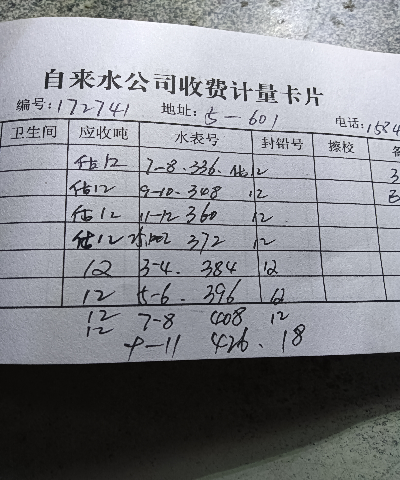 自来水公司收费计量卡片
编号:172741 地址:5-601 电话:1584
卫生间 应收吨 水表号 封铅号 擦校 备
估12 7-8.336. 估12 3
估12 9-10.348 12
估12 11-12 360 12
估12 372 12
12 3-4. 384 12
12 5-6. 396 12
12 7-8 408 12
12 9-11 426. 18